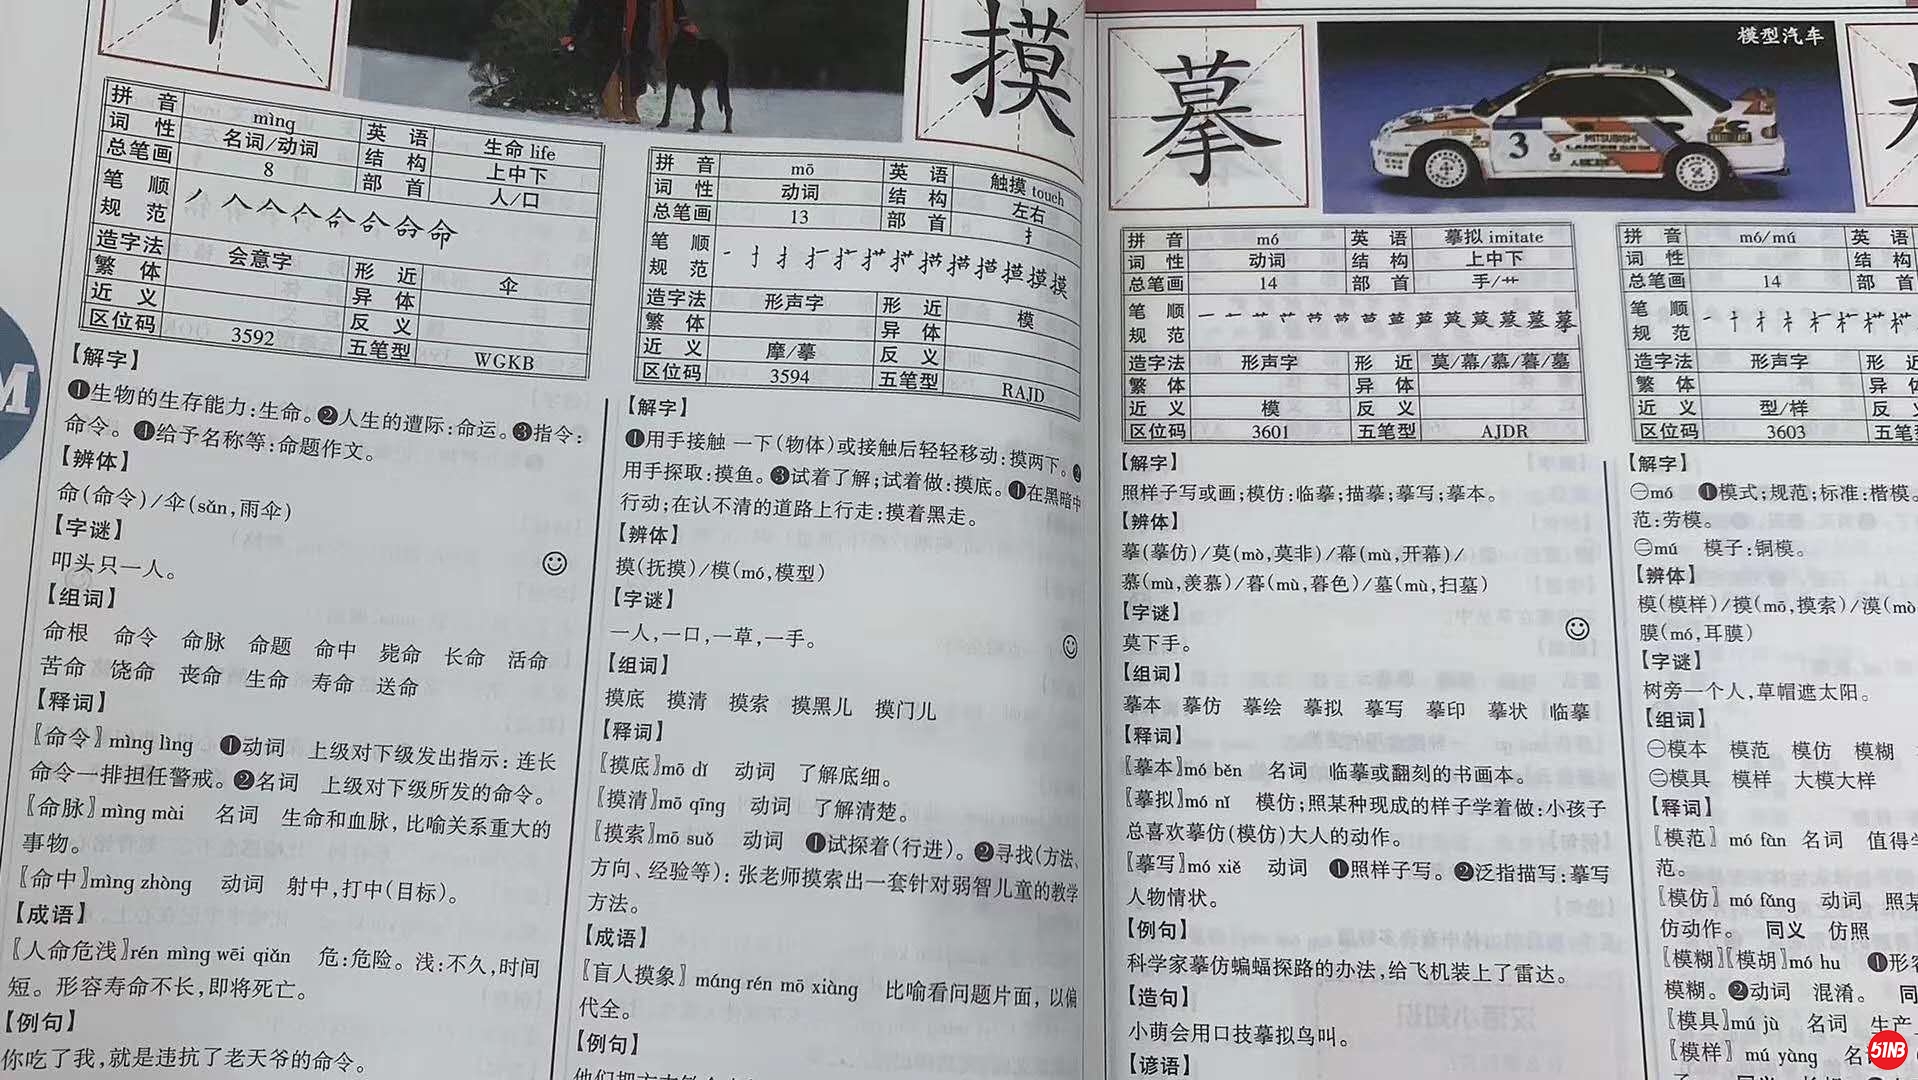 拼 音 mìng 英 语 生命 life
词 性 名词/动词 结 构 上中下
总笔画 8 部 首 人/口
笔 顺
规 范
造字法 会意字 形 近 伞
繁 体 异 体
近 义 反 义
区位码 3592 五笔型 WGKB
【解字】
❶生物的生存能力:生命。❷人生的遭际:命运。❸指令:
命令。❹给予名称等:命题作文。
【辨体】
命(命令)/伞(sǎn,雨伞)
【字谜】
叩头只一人。
【组词】
命根 命令 命脉 命题 命中 毙命 长命 活命
苦命 饶命 丧命 生命 寿命 送命
【释词】
〖命令〗mìng lìng ❶动词 上级对下级发出指示: 连长
命令一排担任警戒。❷名词 上级对下级所发的命令。
〖命脉〗mìng mài 名词 生命和血脉, 比喻关系重大的
事物。
〖命中〗mìng zhòng 动词 射中,打中(目标)。
【成语】
〖人命危浅〗rén mìng wēi qiǎn 危:危险。浅:不久,时间
短。形容寿命不长,即将死亡。
【例句】
你吃了我,就是违抗了老天爷的命令。
摸
拼 音 mō 英 语 触摸 toueh
词 性 动词 结 构 左右
总笔画 13 部 首 扌
笔 顺
规 范
造字法 形声字 形 近 模
繁 体 异 体
近 义 摩/摹 反 义
区位码 3594 五笔型 RAJD
【解字】
❶用手接触 一下(物体)或接触后轻轻移动:摸两下。❷
用手探取:摸鱼。❸试着了解;试着做:摸底。❶在黑暗中
行动;在认不清的道路上行走:摸着黑走。
【辨体】
摸(抚摸)/模(mó,模型)
【字谜】
一人,一口,一草,一手。
【组词】
摸底 摸清 摸索 摸黑儿 摸门儿
【释词】
〖摸底〗mō dǐ 动词 了解底细。
〖摸清〗mō qīng 动词 了解清楚。
〖摸索〗mō suǒ 动词 ❶试探着(行进)。❷寻找(方法、
方向、经验等): 张老师摸索出一套针对弱智儿童的教学
方法。
【成语】
〖盲人摸象〗máng rén mō xiàng 比喻看问题片面, 以偏
代全。
【例句】
摹
模型汽车
3
MITSUBISHI
拼 音 mó 英 语 摹拟 imitate
词 性 动词 结 构 上中下
总笔画 14 部 首 手/艹
笔 顺
规 范
造字法 形声字 形 近 莫/幕/慕/暮/墓
繁 体 异 体
近 义 模 反 义
区位码 3601 五笔型 AJDR
【解字】
照样子写或画;模仿:临摹;描摹;摹写;摹本。
【辨体】
摹(摹仿)/莫(mò,莫非)/幕(mù,开幕)/
慕(mù,羡慕)/暮(mù,暮色)/墓(mù,扫墓)
【字谜】
莫下手。
【组词】
摹本 摹仿 摹绘 摹拟 摹写 摹印 摹状 临摹
【释词】
〖摹本〗mó běn 名词 临摹或翻刻的书画本。
〖摹拟〗mó nǐ 模仿;照某种现成的样子学着做:小孩子
总喜欢摹仿(模仿)大人的动作。
〖摹写〗mó xiě 动词 ❶照样子写。❷泛指描写:摹写
人物情状。
【例句】
科学家摹仿蝙蝠探路的办法,给飞机装上了雷达。
【造句】
小萌会用口技摹拟鸟叫。
【谚语】
拼 音 mó/mú 英 语
词 性 结 构
总笔画 14 部 首
笔 顺
规 范
造字法 形声字 形 近
繁 体 异 体
近 义 型/样 反 义
区位码 3603 五笔
【解字】
㊀mó ❶模式;规范;标准:楷模。
范:劳模。
㊁mú 模子:铜模。
【辨体】
模(模样)/摸(mō,摸索)/漠(mò
膜(mó,耳膜)
【字谜】
树旁一个人,草帽遮太阳。
【组词】
㊀模本 模范 模仿 模糊
㊁模具 模样 大模大样
【释词】
〖模范〗mó fàn 名词 值得学
范。
〖模仿〗mó fǎng 动词 照某
仿动作。 同义 仿照
〖模糊〗〖模胡〗mó hu ❶形容
模糊。❷动词 混淆。 同
〖模具〗mú jù 名词 生产
〖模样〗mú yàng 名
51NB